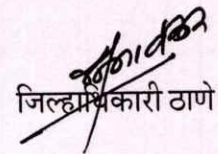 जिल्हाधिकारी ठाणे